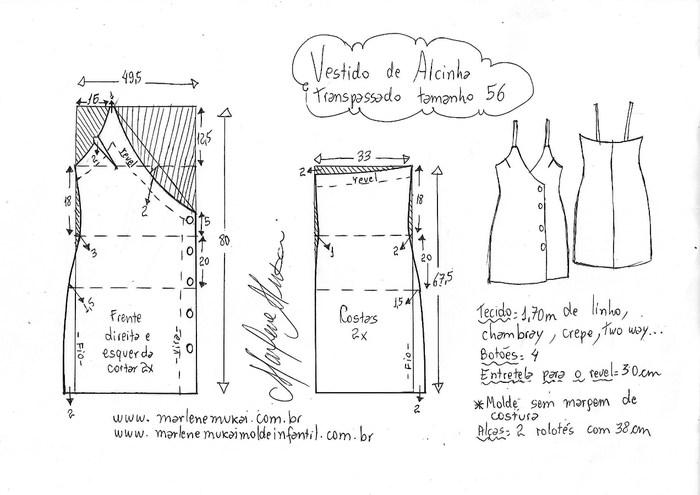 Vestido de Alcinha
Transpassado tamanho 56
49,5
15
12,5
2
revel
2
18
3
5
20
80
1,5
Frente
direita e
esquerda
cortar 2x
-Fio-
Vira-
2
Marlene Mukai
33
2
revel
18
1
2
20
67,5
1,5
Costas
2x
-Fio-
2
Tecido: 1,70m de linho,
chambray, crepe, two way...
Botões: 4
Entretela para o revel= 30cm
*Molde sem margem de
costura
Alças= 2 rolotês com 38cm
www.marlenemukai.com.br
www.marlenemukaimoldeinfantil.com.br